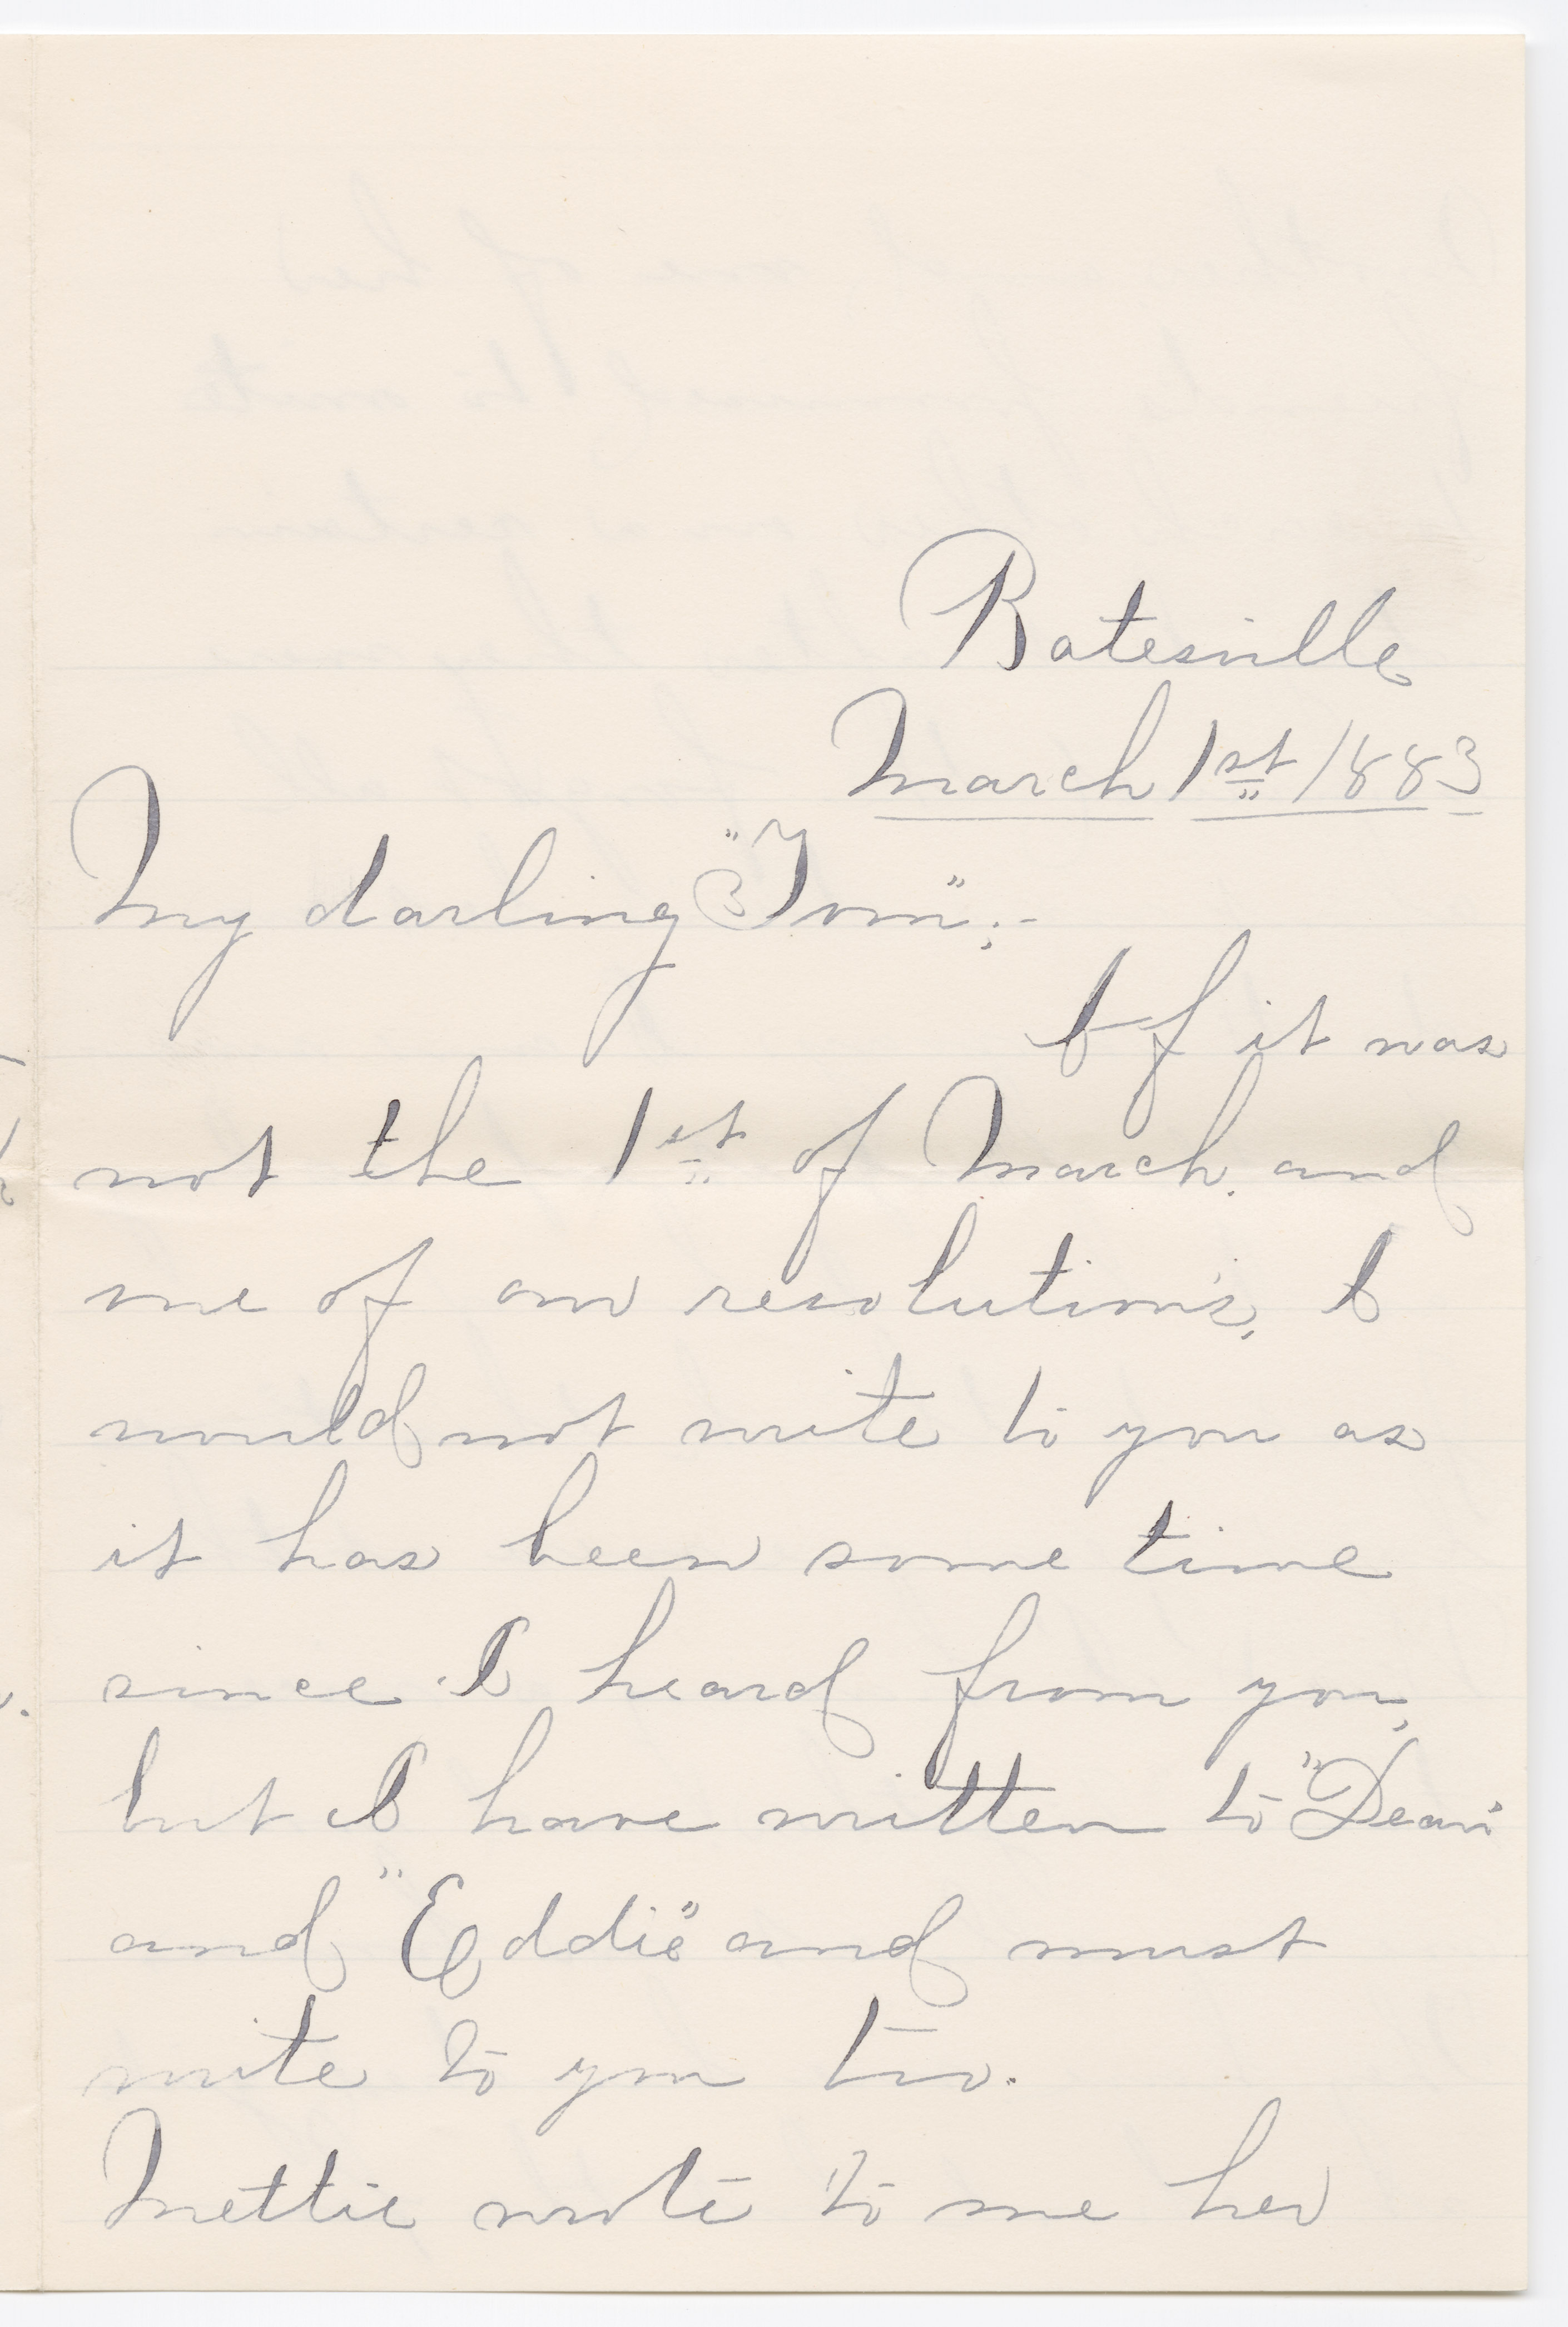 Batesville
March 1st 1883
My darling "Tom":-
If it was
not the 1st of March, and
one of our resolution's, I
would not write to you as
it has been some time
since I heard from you,
but I have written to "Dean"
and "Eddie" and must
write to you too.
Mettie wrote to me her